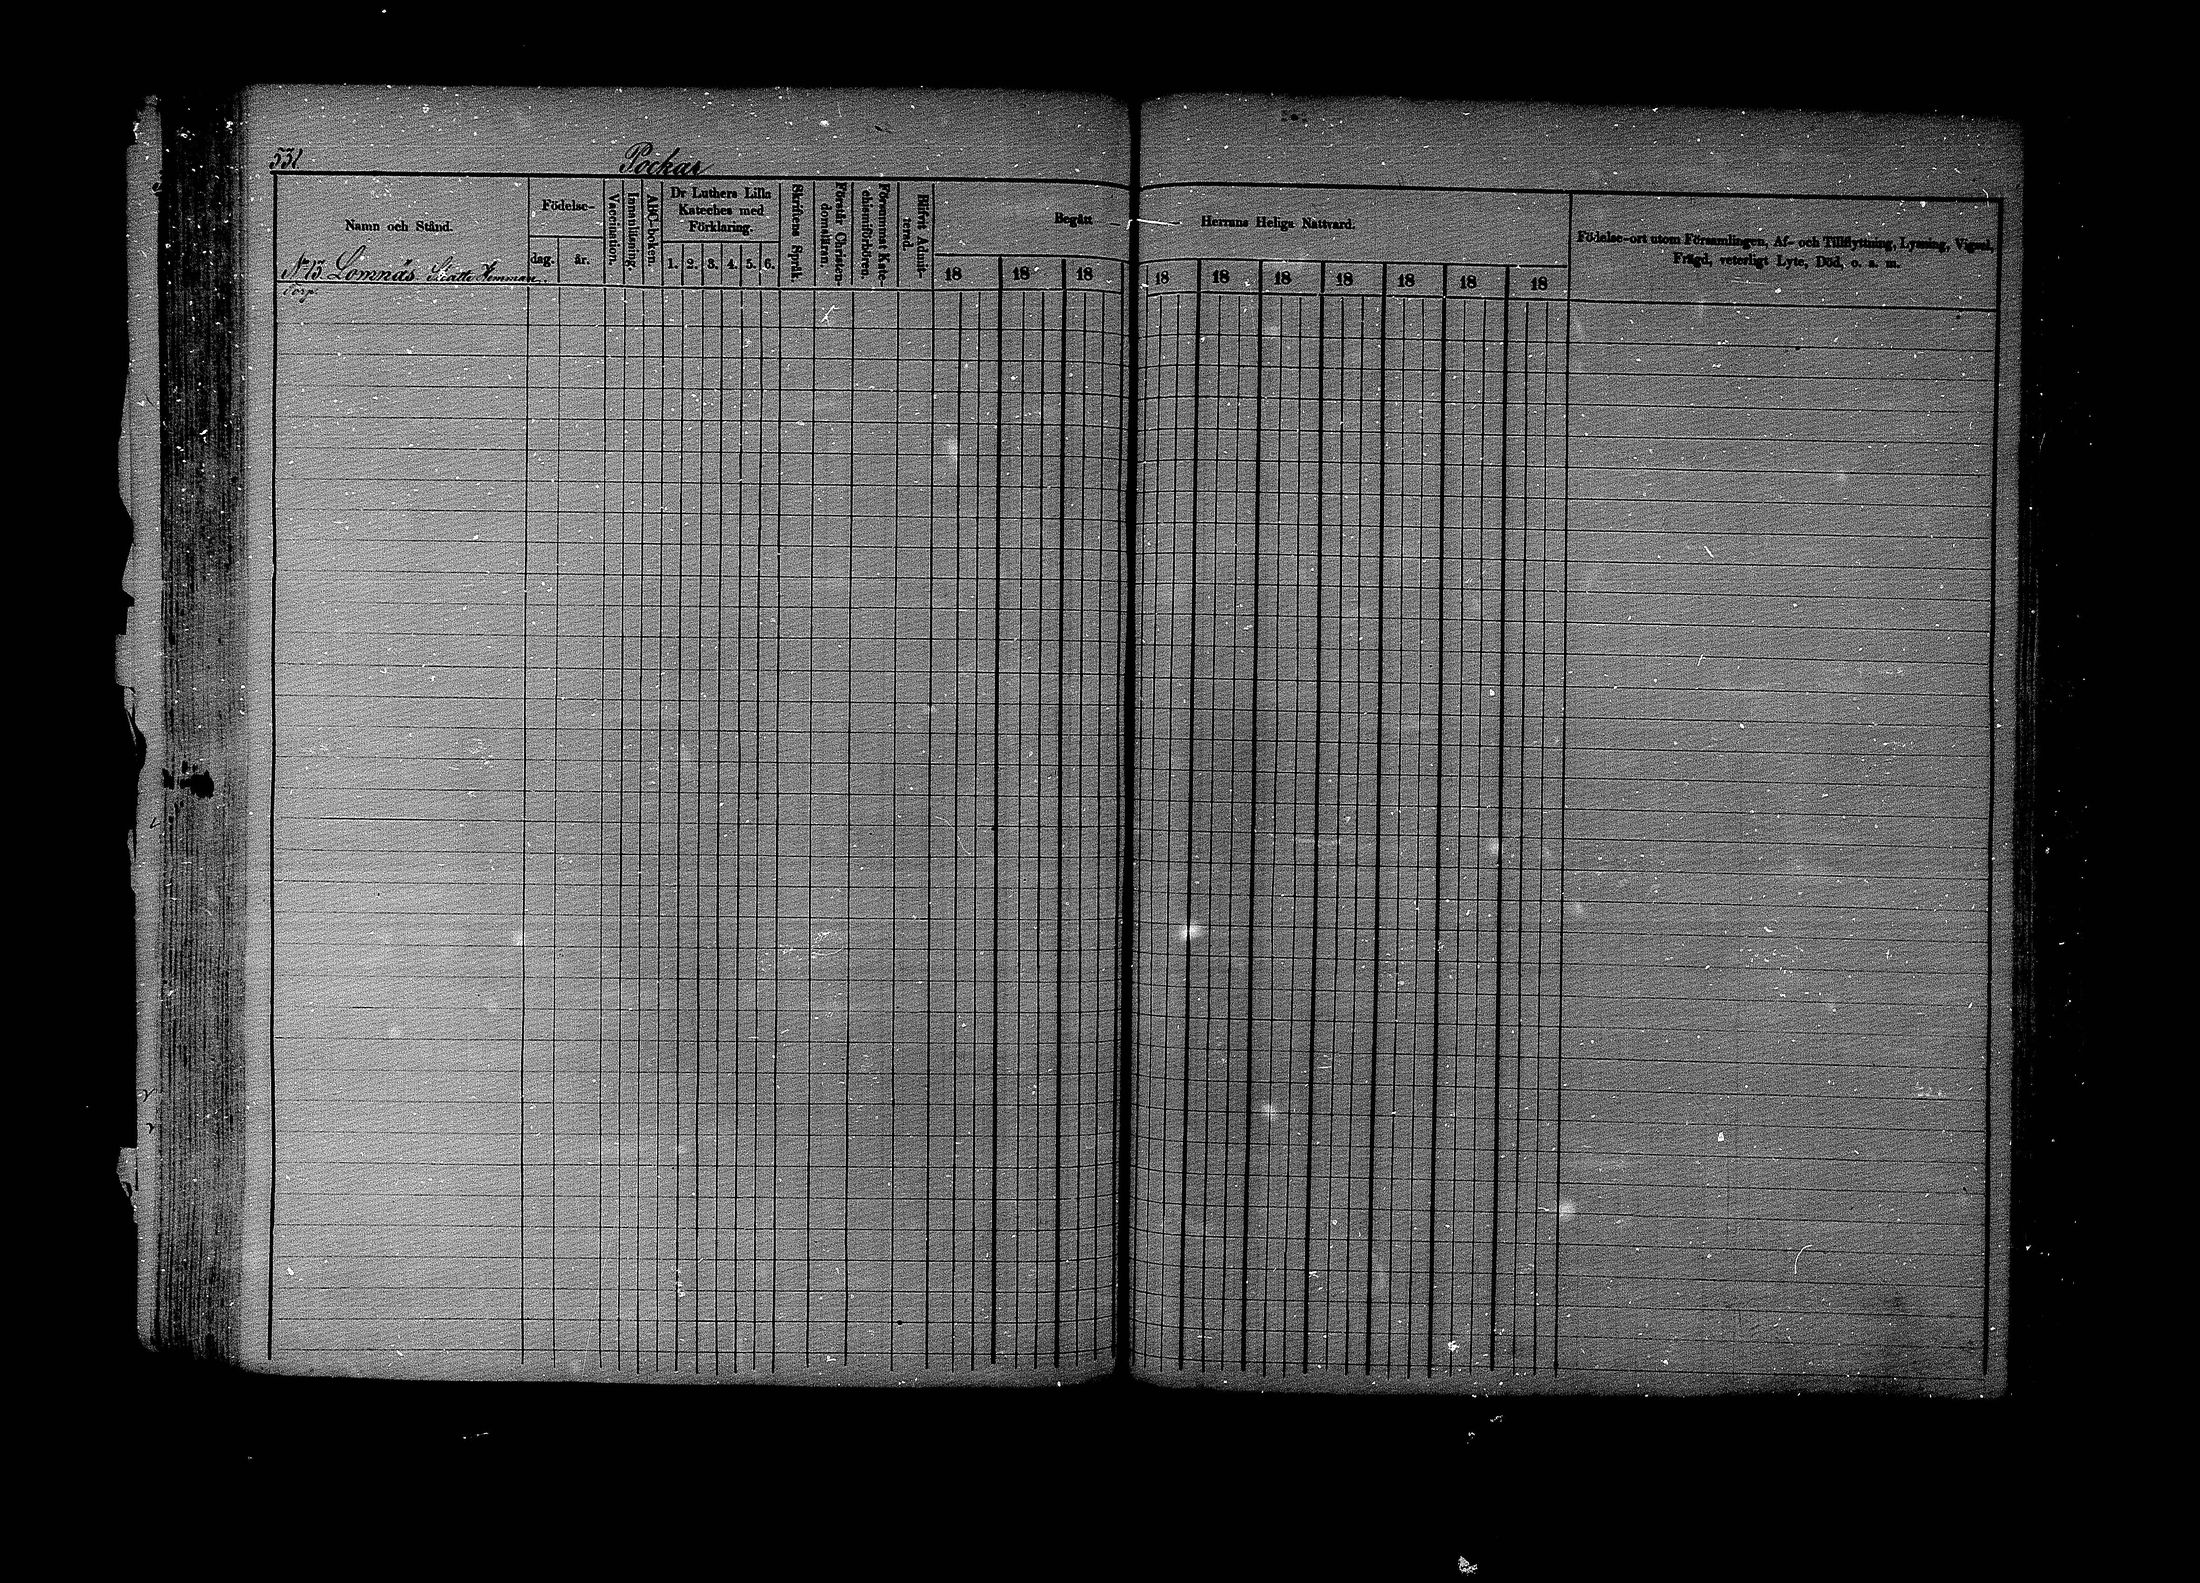 531
Pockar
Namn och Stånd.
Födelse-
dag.
år.
Vaccination.
Innanläsning.
ABC-boken.
Dr Luthers Lilla
Kateches med
Förklaring.
1. 2. 3. 4. 5. 6.
Skriftens Språk.
Förstår Christen-
domsläran.
Försummat Kate-
chismiförhören.
Blifvit Admit-
terad.
Begått
Herrans Heliga Nattvard.
18 18 18 18 18 18 18 18 18 18
Födelse-ort utom Församlingen, Af- och Tillflyttning, Lysning, Vigsel,
Frägd, veterligt Lyte, Död, o. s. m.
No 13 Lomnäs Skatte Hemman.
Torp